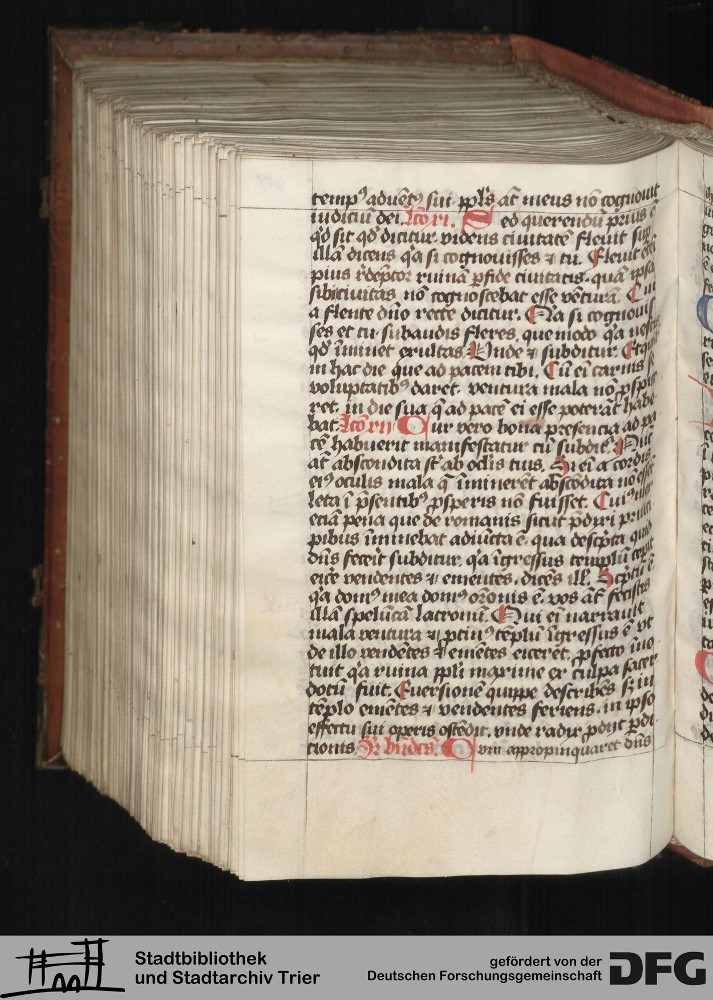 tempꝰ aduētꝰ sui. ppl̄s at̄ meus nō cognouit
iudiciū dei. Lc̄o xi. Sed querendū prius ē
qd̓ sit qd̓ dicitur. videns ciuitatē fleuit sup̄
illā dicens q̓a si cognouisses ⁊ tu. Fleuit
pius rede̅ptor ruinā ꝑfide ciuitatis. quā ipsa
sibi ciuitas nō cognoscebat esse vēturā. Cui
a flente dn̄o recte dicitur. Q̓a si cognouis
ses et tu. subaudis fleres. que modo q̓a nescis
qd̓ īminet exultas. Unde ⁊ subditur. Et quidē
in hac die que ad pacem tibi. Cū ei̅ carnis se
voluptatibꝰ daret. ventura mala nō ꝓspice
ret. in die sua q̄ ad pacē ei esse poterāt habe
bat. Lc̄o xii Cur vero bona presencia ad pa
cē habuerit manifestatur cū subdit̄. Nūc
at̄ abscondita st̄ ab oc̄lis tuis. Si ei̅ a cordis
eiꝰ oculis mala q̄ īminerēt abscōdita nō essēt
leta ī p̄sentibꝰ ꝓsperis nō fuisset. Cuiꝰ mox
eciā pena que de romanis sicut p̄dixi princi
pibus īminebat adiūcta ē. qua descp̄ta quid
dn̄s fecerit subditur. q̓a īgressus templū cepit
eice̅ vendentes ⁊ ementes. dicēs ill̄. Scp̄tū ē
q̓a domꝰ mea domꝰ orōnis ē. vos āt fecistis
illā spelūcā latronū. Qui ei̅ narrauit
mala ventura ⁊ ꝓtinꝰ tēplū īgressus ē vt
de illo vendētes ⁊ emētes eiceret. ꝓfecto īno
tuit q̓a ruina ppl̄i maxime ex culpa sacer
dotū fuit. Euersionē quippe describēs sꝫ in
tēplo emētes ⁊ vendentes feriens. in ipso
effectu sui operis ostēdit. vnde radix ꝓdiit ꝑdi
tionis. Cum appropinquaret dn̄s
Stadtbibliothek
und Stadtarchiv Trier
gefördert von der
Deutschen Forschungsgemeinschaft
DFG